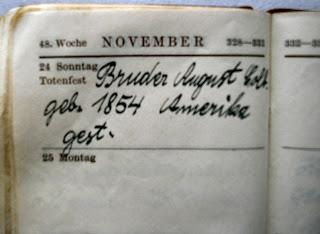 48. Woche NOVEMBER 328—331
332—33
24 Sonntag
Totenfest
Bruder August
geb. 1854 Amerika
gest.
25 Montag